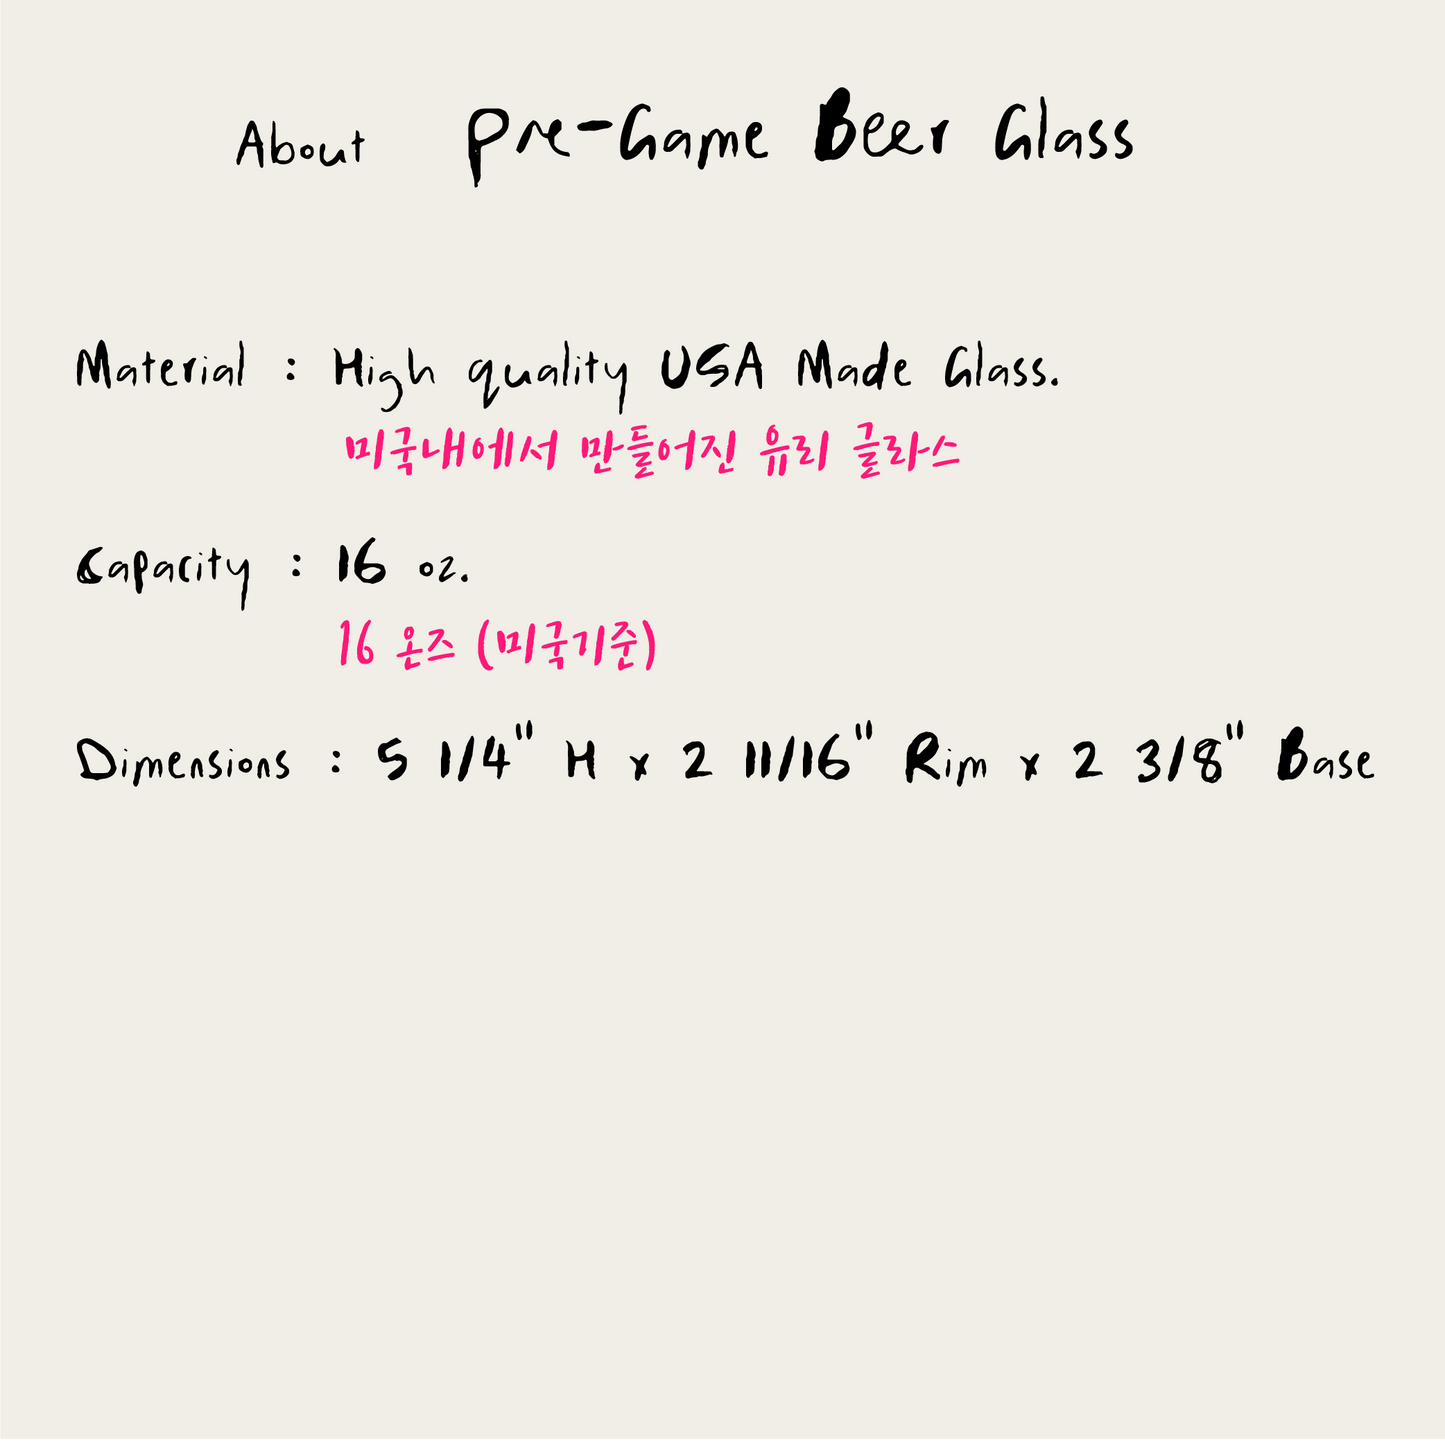 About Pre-Game Beer Glass
Material : High quality USA Made Glass.
미국내에서 만들어진 유리 글라스
Capacity : 16 oz.
16 온즈 (미국기준)
Dimensions : 5 1/4" H x 2 11/16" Rim x 2 3/8" Base